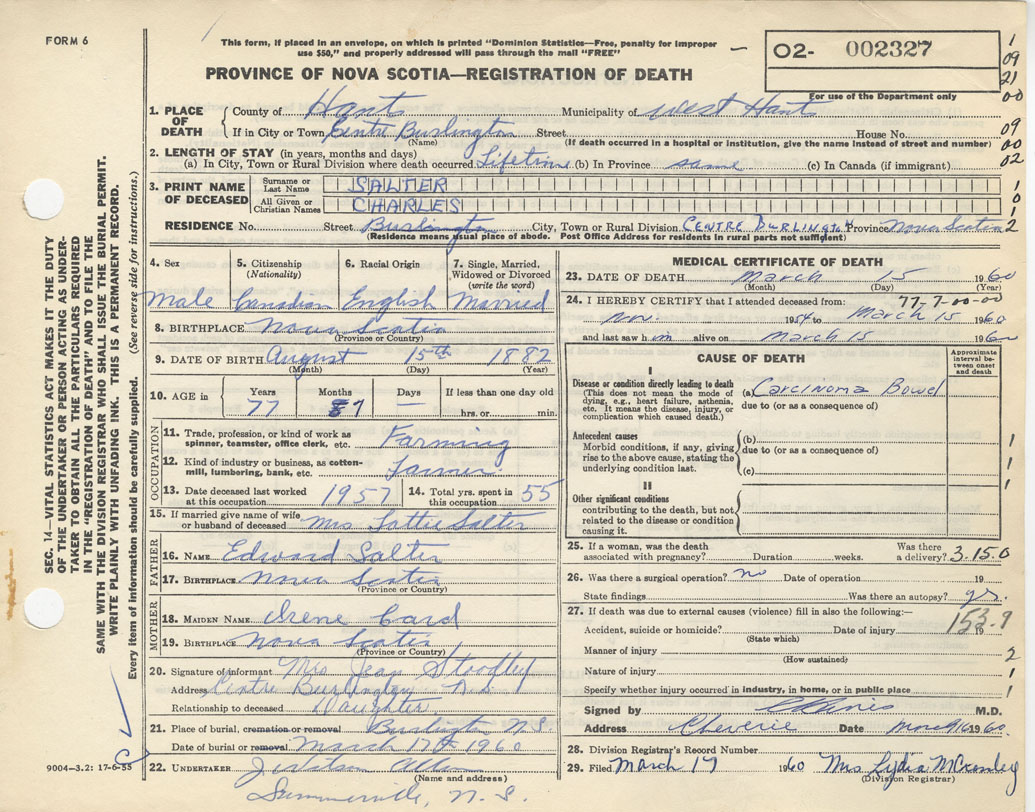 FORM 6
This form, if placed in an envelope, on which is printed "Dominion Statistics—Free, penalty for improper
use $50," and properly addressed will pass through the mail "FREE"
PROVINCE OF NOVA SCOTIA—REGISTRATION OF DEATH
02- 002327
For use of the Department only
1
09
21
00
09
00
02
1
0
1
2
SEC. 14—VITAL STATISTICS ACT MAKES IT THE DUTY
OF THE UNDERTAKER OR PERSON ACTING AS UNDER-
TAKER TO OBTAIN ALL THE PARTICULARS REQUIRED
IN THE "REGISTRATION OF DEATH" AND TO FILE THE
SAME WITH THE DIVISION REGISTRAR WHO SHALL ISSUE THE BURIAL PERMIT.
WRITE PLAINLY WITH UNFADING INK. THIS IS A PERMANENT RECORD.
Every item of information should be carefully supplied. (See reverse side for instructions.)
1. PLACE OF DEATH
County of Hants Municipality of West Hants
If in City or Town Centre Burlington Street House No.
(Name) (If death occurred in a hospital or institution, give the name instead of street and number)
2. LENGTH OF STAY (in years, months and days)
(a) In City, Town or Rural Division where death occurred Lifetime (b) In Province same (c) In Canada (if immigrant)
3. PRINT NAME OF DECEASED
Surname or Last Name SALTER
All Given or Christian Names CHARLES
RESIDENCE No. Street Burlington City, Town or Rural Division CENTRE BURLINGTON Province Nova Scotia
(Residence means usual place of abode. Post Office Address for residents in rural parts not sufficient)
4. Sex 5. Citizenship (Nationality) 6. Racial Origin 7. Single, Married, Widowed or Divorced (write the word)
Male Canadian English Married
8. BIRTHPLACE Nova Scotia
(Province or Country)
9. DATE OF BIRTH August 15th 1882
(Month) (Day) (Year)
10. AGE in Years Months Days If less than one day
77 7 — hrs. or min.
OCCUPATION
11. Trade, profession, or kind of work as spinner, teamster, office clerk, etc. Farming
12. Kind of industry or business, as cotten-mill, lumbering, bank, etc. Farmer
13. Date deceased last worked at this occupation 1957 14. Total yrs. spent in this occupation 55
15. If married give name of wife or husband of deceased Mrs Lottie Salter
FATHER
16. NAME Edward Salter
17. BIRTHPLACE Nova Scotia
(Province or Country)
MOTHER
18. MAIDEN NAME Irene Card
19. BIRTHPLACE Nova Scotia
(Province or Country)
20. Signature of informant Mrs Jean
Address Centre Burlington N.S.
Relationship to deceased Daughter
21. Place of burial, cremation or removal Burlington N.S.
Date of burial or removal March 17th 1960
22. UNDERTAKER
(Name and address)
Summerville, N.S.
9004—3.2: 17-6-55
MEDICAL CERTIFICATE OF DEATH
23. DATE OF DEATH March 15 1960
(Month) (Day) (Year)
24. I HEREBY CERTIFY that I attended deceased from: 77-7-00-00
Nov. 1954 to March 15 1960
and last saw him alive on March 15 1960
CAUSE OF DEATH
Approximate interval between onset and death
I
Disease or condition directly leading to death (a) Carcinoma Bowel
(This does not mean the mode of dying, e.g., heart failure, asthenia, etc. It means the disease, injury, or complication which caused death.)
due to (or as a consequence of)
Antecedent causes
Morbid conditions, if any, giving rise to the above cause, stating the underlying condition last.
(b)
due to (or as a consequence of)
(c)
II
Other significant conditions
contributing to the death, but not related to the disease or condition causing it.
1
1
1
25. If a woman, was the death associated with pregnancy? Duration weeks. Was there a delivery? 3.15.0
26. Was there a surgical operation? no Date of operation 19
State findings Was there an autopsy?
27. If death was due to external causes (violence) fill in also the following:—
153.9
Accident, suicide or homicide? Date of injury 19
(State which)
Manner of injury 2
(How sustained)
Nature of injury 1
Specify whether injury occurred in industry, in home, or in public place 1
Signed by M.D.
Address Cheverie Date March 16 1960
28. Division Registrar's Record Number
29. Filed March 17 1960 Mrs Lydia
(Division Registrar)